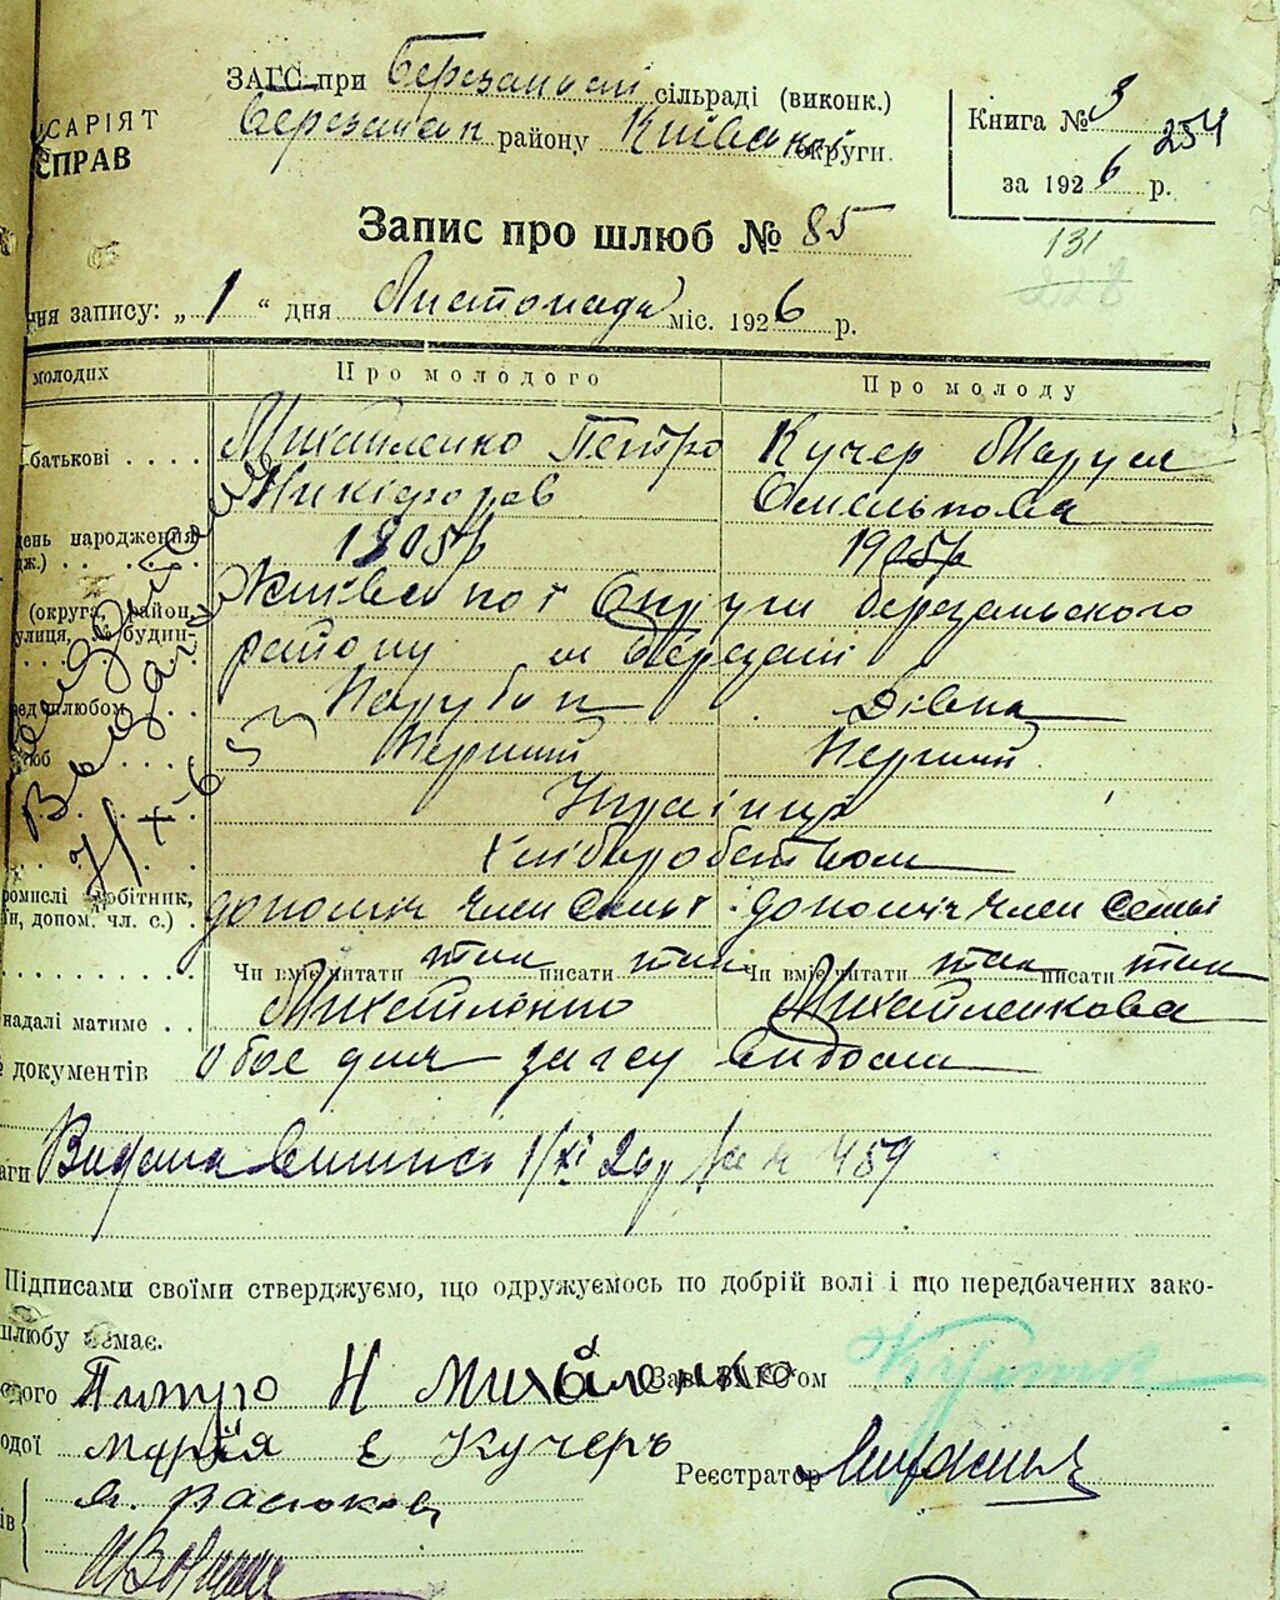 САРІЯТ
СПРАВ
ЗАГС при Березанськ сільраді (виконк.)
Березанськ району Київської округи
Книга № 3
254
за 1926 р.
Запис про шлюб № 85
131
запису: „ 1 “ дня Листопада міс. 1926 р.
молодих
Про молодого
Про молоду
батькові
Михайленко Петро
Кучер Маруся
Никіфоров
Омелькова
день народження
1905 р
1905 р
(округа, район,
улиця, № будин-
Київської Округи Березанського
району м Березані
шлюбом
Парубок
Дівка
Перший
Перший
Українці
Хліборобством
ромислі робітник,
ін, допом. чл. с.)
допоміч член семьї
допоміч член семьї
Чи вміє читати так писати так
Чи вміє читати так писати так
надалі матиме
Михайленко
Михайленкова
документів
обоє для загсу відомі
Видана Випись 1/XI 26 р за № 459
Підписами своїми стверджуємо, що одружуємось по добрій волі і що передбачених зако-
шлюбу немає.
Питро Н Михайленко
Зав. ЗАГСом
Марія Є Кучеръ
Реєстратор